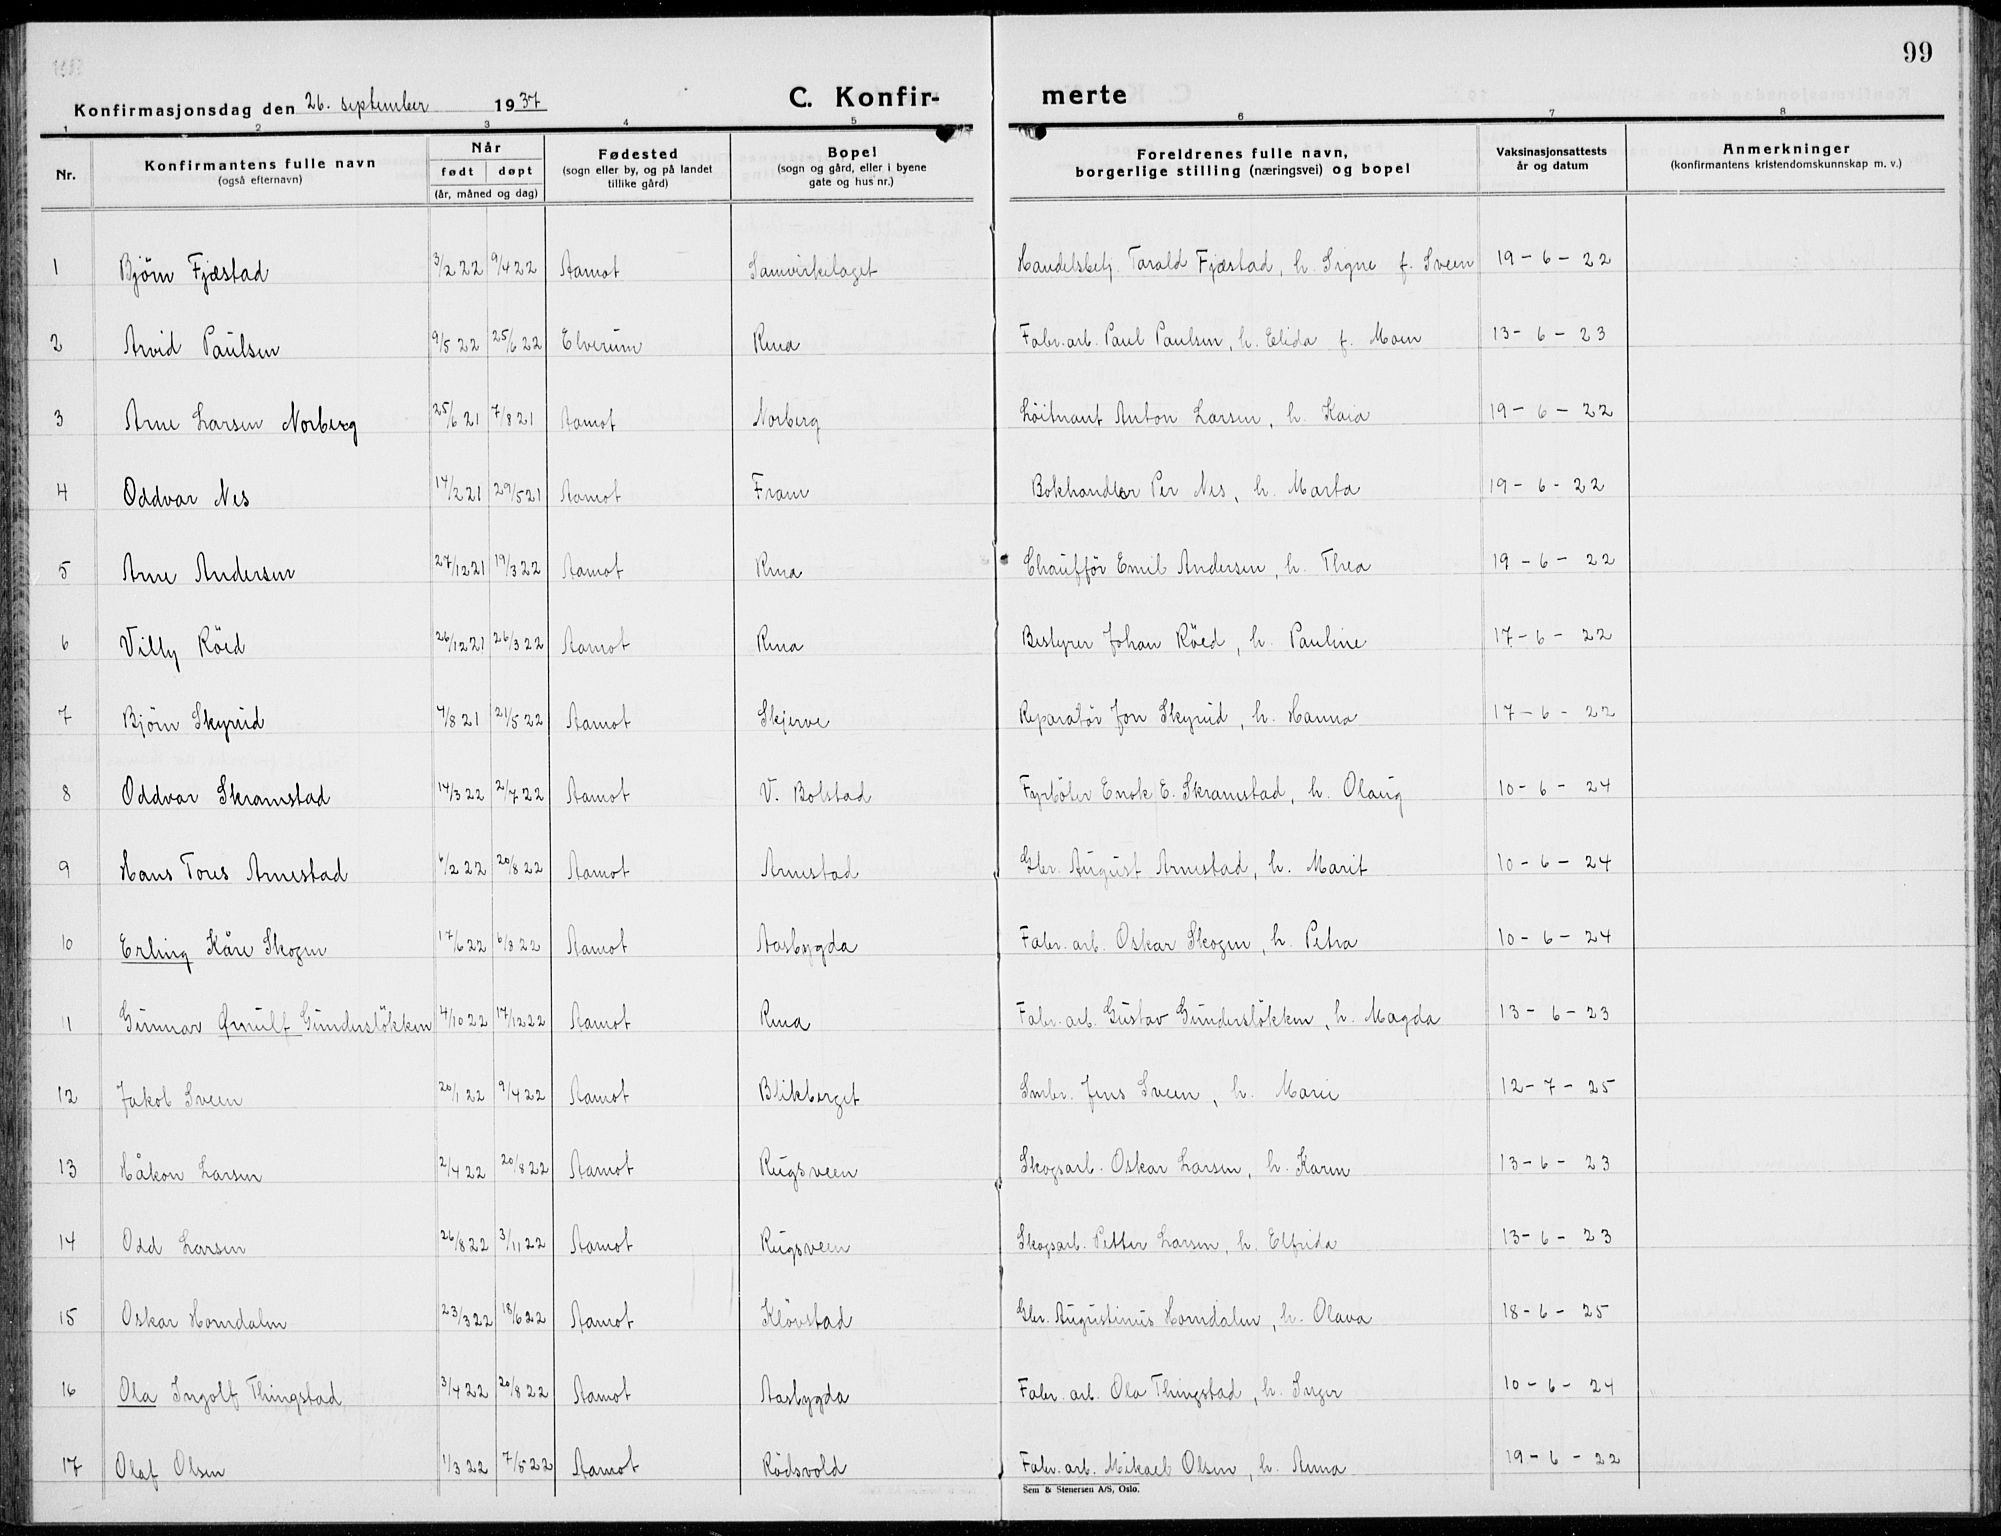 99
Konfirmasjonsdag den 26. september 1937 C. Konfir- merte
1 2 3 4 5 6 7 8
Nr. Konfirmantens fulle navn (også efternavn) Når født døpt (år, måned og dag) Fødested (sogn eller by, og på landet tillike gård) Bopel (sogn og gård, eller i byene gate og hus nr.) Foreldrenes fulle navn, borgerlige stilling (næringsvei) og bopel Vaksinasjonsattests år og datum Anmerkninger (konfirmantens kristendomskunnskap m. v.)
1 Björn Fjæstad 3/2 22 9/4 22 Aamot Samvirkelaget Handelsbetj. Tarald Fjæstad, h. Signe f. Sveen 19-6-22
2 Arvid Paulsen 9/5 22 25/6 22 Elverum Rena Fabr. arb. Paul Paulsen, h. Elida f. Moen 13-6-23
3 Arne Larsen Norberg 25/6 21 7/8 21 Aamot Norberg Löitnant Anton Larsen, h. Kaia 19-6-22
4 Oddvar Nes 14/2 21 29/5 21 Aamot Fram Bokhandler Per Nes, h. Marta 19-6-22
5 Arne Andersen 27/12 21 19/3 22 Aamot Rena Chaufför Emil Andersen, h. Thea 19-6-22
6 Villy Röed 26/12 21 26/3 22 Aamot Rena Bestyrer Johan Röed, h. Pauline 17-6-22
7 Björn Skyrud 4/8 21 21/5 22 Aamot Skjerve Reparatör Jon Skyrud, h. Hanna 17-6-22
8 Oddvar Skramstad 14/3 22 2/7 22 Aamot V. Bolstad Fyrböter Enok E. Skramstad, h. Olaug 10-6-24
9 Hans Tores Arnestad 4/2 22 20/8 22 Aamot Arnestad Gbr. August Arnestad, h. Marit 10-6-24
10 Erling Kåre Skogen 17/6 22 6/8 22 Aamot Aasbygda Fabr. arb. Oskar Skogen, h. Petra 10-6-24
11 Gunnar Ørnulf Gunderslökken 4/10 22 17/12 22 Aamot Rena Fabr. arb. Gustav Gunderslökken, h. Magda 13-6-23
12 Jakob Sveen 20/1 22 9/4 22 Aamot Blikberget Smbr. Jens Sveen, h. Marie 12-7-25
13 Håkon Larsen 2/4 22 20/8 22 Aamot Rugsveen Skogsarb. Oskar Larsen, h. Karen 13-6-23
14 Odd Larsen 26/8 22 3/11 22 Aamot Rugsveen Skogsarb. Petter Larsen, h. Elfrida 13-6-23
15 Oskar Horndalen 23/3 22 18/6 22 Aamot Klövstad Gbr. Augustinus Horndalen, h. Olava 18-6-25
16 Ola Ingolf Thingstad 3/4 22 20/8 22 Aamot Aasbygda Fabr. arb. Ola Thingstad, h. Inger 10-6-24
17 Olaf Olsen 1/3 22 7/5 22 Aamot Rödsvold Fabr. arb. Mikael Olsen, h. Anna 19-6-22
Sem & Stenersen A/S, Oslo.